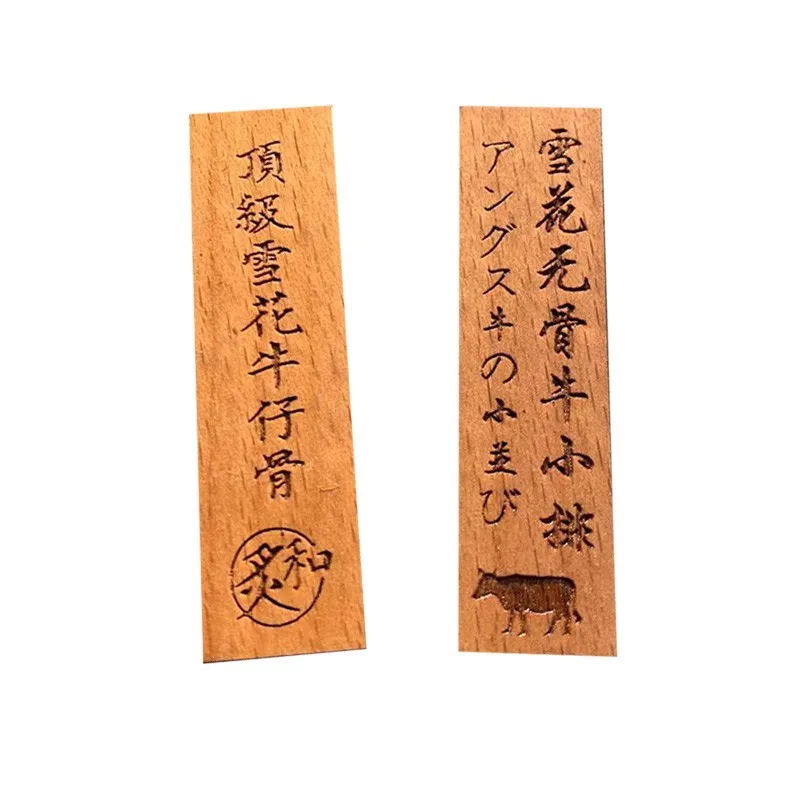 頂級雪花牛仔骨
炙和
雪花无骨牛小排
アングス牛の小並び